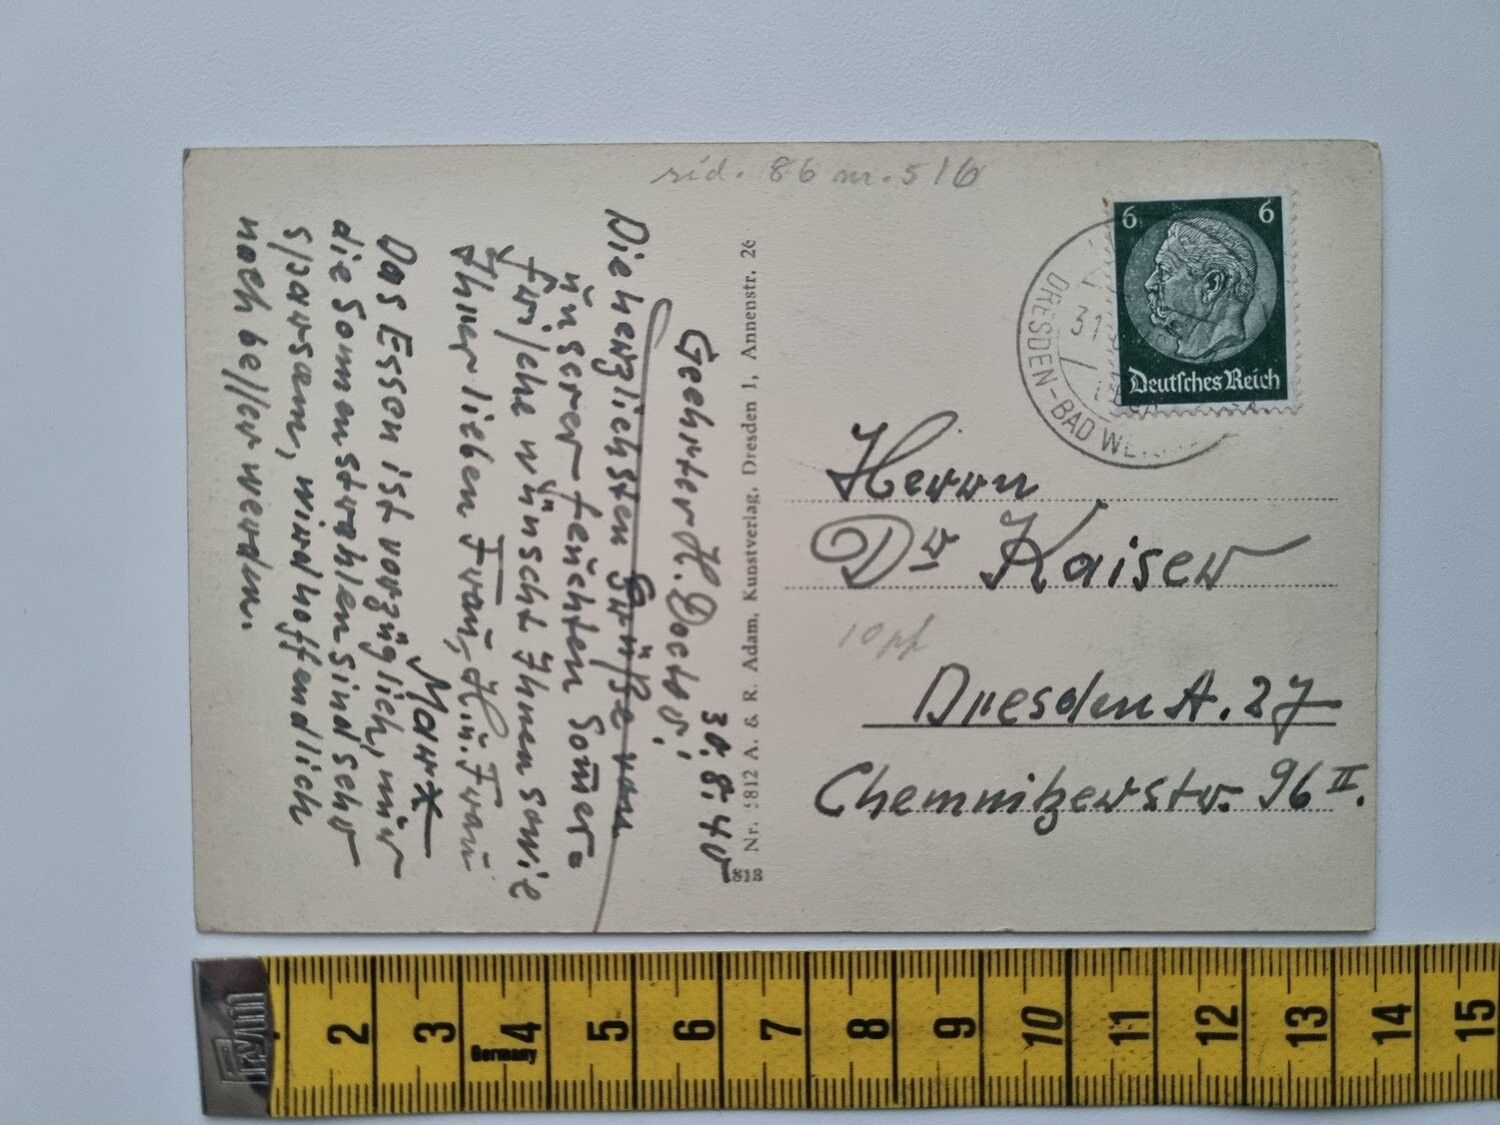 rid. 86 nr. 516
30.8.40
Geehrter H. Doctor!
Die herzlichsten Grüße von
unserer feuchten Somer=
frische wünscht Ihnen sowie
Ihrer lieben Frau, H. u. Frau
Marx
Das Essen ist vorzüglich, nur
die Sonnenstrahlen sind sehr
sparsam, wird hoffendlich
noch besser werden.
Nr. 5812 A. & R. Adam, Kunstverlag, Dresden 1, Annenstr. 26
813
6 6
Deutsches Reich
DRESDEN-BAD
31
Herrn
Dr Kaiser
10 pf
Dresden A. 27
Chemnitzerstr. 96 II.
2 3 4 5 6 7 8 9 10 11 12 13 14 15
Germany